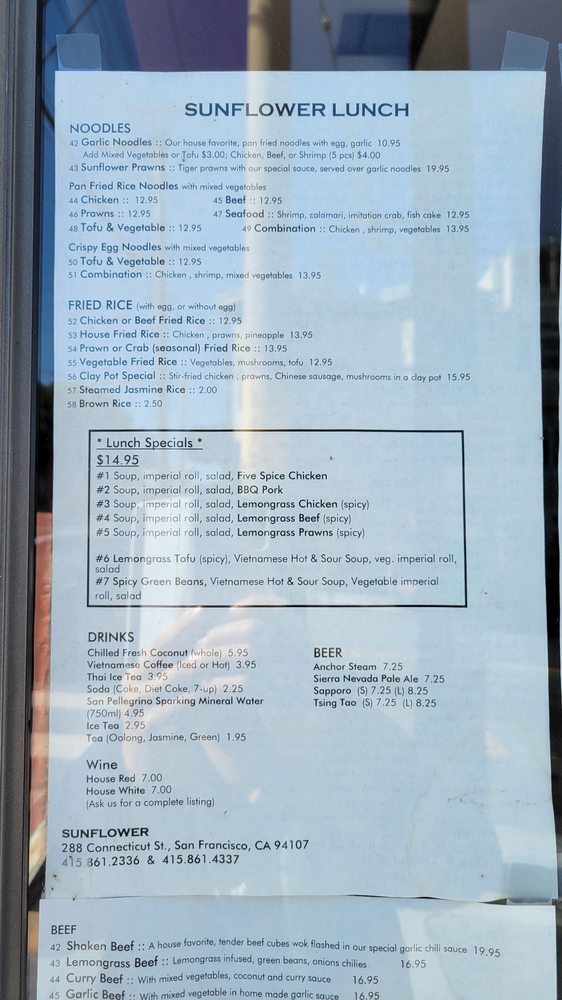 SUNFLOWER LUNCH
NOODLES
42 Garlic Noodles :: Our house favorite, pan fried noodles with egg, garlic 10.95
Add Mixed Vegetables or Tofu $3.00; Chicken, Beef, or Shrimp (5 pcs) $4.00
43 Sunflower Prawns :: Tiger prawns with our special sauce, served over garlic noodles 19.95
Pan Fried Rice Noodles with mixed vegetables
44 Chicken :: 12.95 45 Beef :: 12.95
46 Prawns :: 12.95 47 Seafood :: Shrimp, calamari, imitation crab, fish cake 12.95
48 Tofu & Vegetable :: 12.95 49 Combination :: Chicken , shrimp, vegetables 13.95
Crispy Egg Noodles with mixed vegetables
50 Tofu & Vegetable :: 12.95
51 Combination :: Chicken , shrimp, mixed vegetables 13.95
FRIED RICE (with egg, or without egg)
52 Chicken or Beef Fried Rice :: 12.95
53 House Fried Rice :: Chicken , prawns, pineapple 13.95
54 Prawn or Crab (seasonal) Fried Rice :: 13.95
55 Vegetable Fried Rice :: Vegetables, mushrooms, tofu 12.95
56 Clay Pot Special :: Stir-fried chicken , prawns, Chinese sausage, mushrooms in a clay pot 15.95
57 Steamed Jasmine Rice :: 2.00
58 Brown Rice :: 2.50
* Lunch Specials *
$14.95
#1 Soup, imperial roll, salad, Five Spice Chicken
#2 Soup, imperial roll, salad, BBQ Pork
#3 Soup, imperial roll, salad, Lemongrass Chicken (spicy)
#4 Soup, imperial roll, salad, Lemongrass Beef (spicy)
#5 Soup, imperial roll, salad, Lemongrass Prawns (spicy)
#6 Lemongrass Tofu (spicy), Vietnamese Hot & Sour Soup, veg. imperial roll,
salad
#7 Spicy Green Beans, Vietnamese Hot & Sour Soup, Vegetable imperial
roll, salad
DRINKS
Chilled Fresh Coconut (whole) 5.95
Vietnamese Coffee (Iced or Hot) 3.95
Thai Ice Tea 3.95
Soda (Coke, Diet Coke, 7-up) 2.25
San Pellegrino Sparking Mineral Water
(750ml) 4.95
Ice Tea 2.95
Tea (Oolong, Jasmine, Green) 1.95
BEER
Anchor Steam 7.25
Sierra Nevada Pale Ale 7.25
Sapporo (S) 7.25 (L) 8.25
Tsing Tao (S) 7.25 (L) 8.25
Wine
House Red 7.00
House White 7.00
(Ask us for a complete listing)
SUNFLOWER
288 Connecticut St., San Francisco, CA 94107
415.861.2336 & 415.861.4337
BEEF
42 Shaken Beef :: A house favorite, tender beef cubes wok flashed in our special garlic chili sauce 19.95
43 Lemongrass Beef :: Lemongrass infused, green beans, onions chilies 16.95
44 Curry Beef :: With mixed vegetables, coconut and curry sauce 16.95
45 Garlic Beef :: With mixed vegetable in home made garlic sauce 16.95